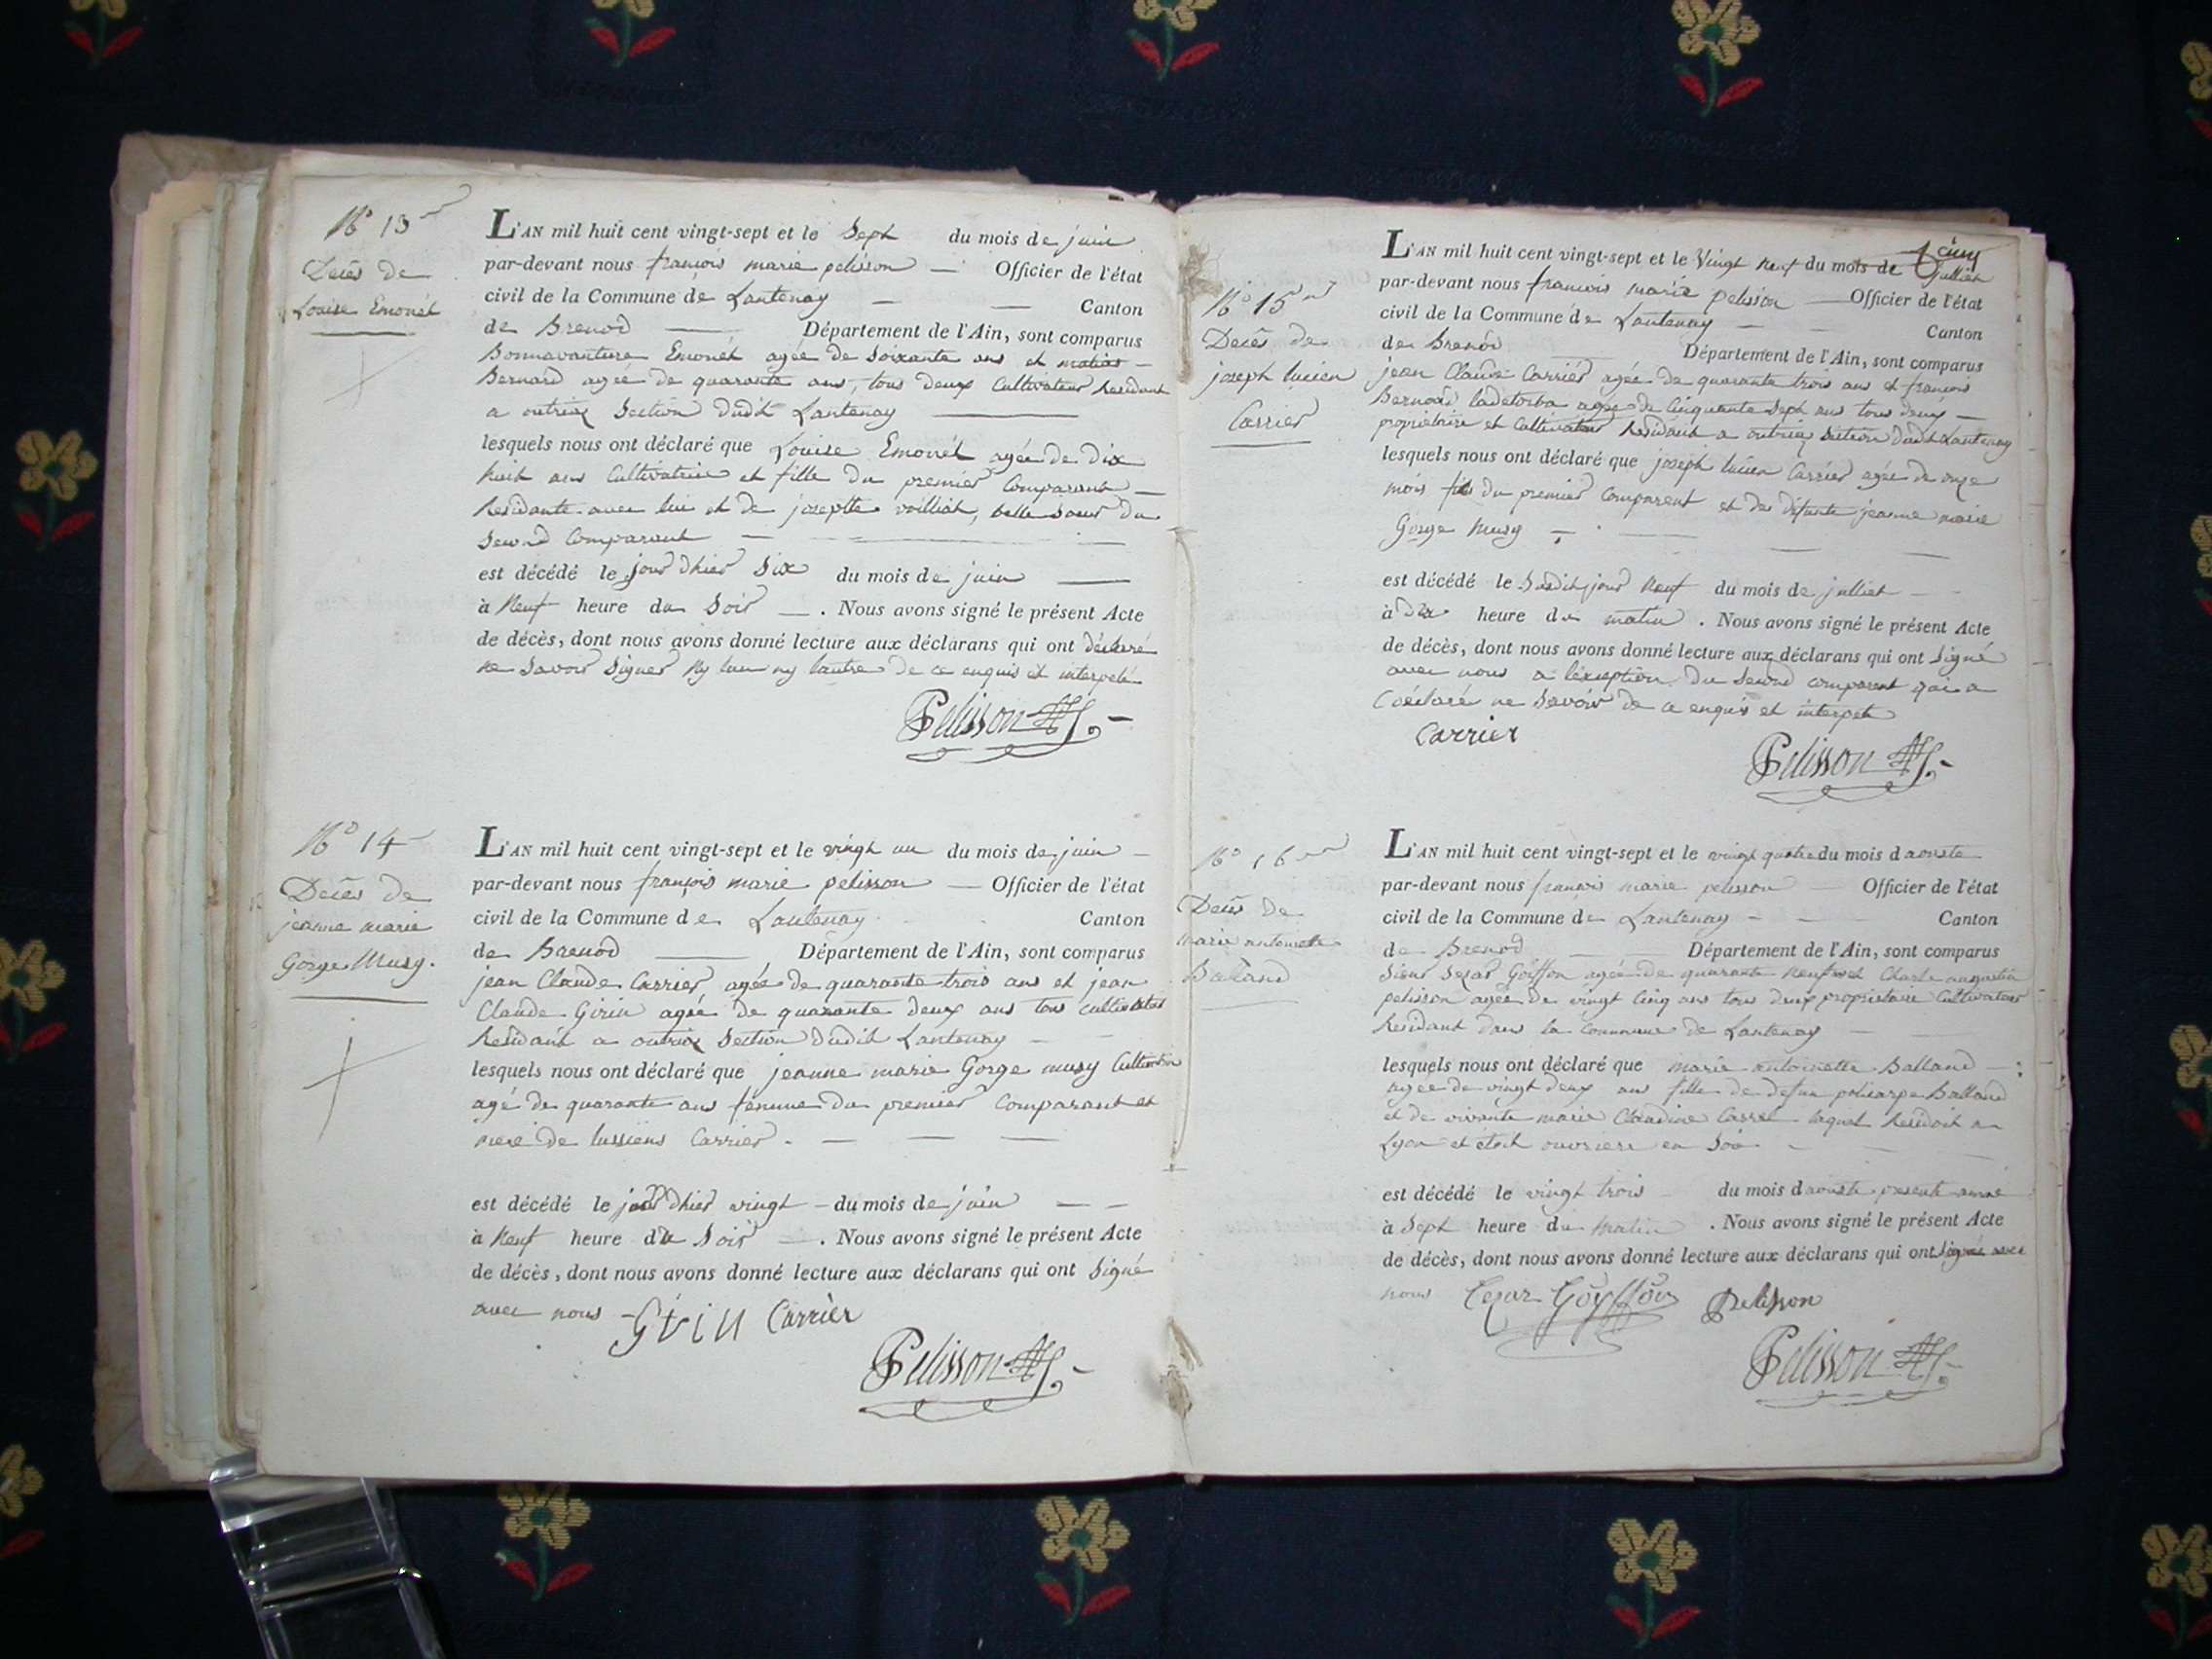 N° 13
Decès de
Louise Emonét
L'AN mil huit cent vingt-sept et le Sept du mois de juin
par-devant nous françois marie pelisson — Officier de l'état
civil de la Commune de Lantenay — — Canton
de Brenod — Département de l'Ain, sont comparus
Bonnavanture Emonét agée de Soixante ans et matias
Bernard agée de quarante ans, tous deux Cultivateur Residant
a outriaz Section dudit Lantenay
lesquels nous ont déclaré que Louise Emonét agée de dix
huit ans Cultivatrice et fille du premier Comparant
Residante avec lui et de josepte voilliat, belle Soeur du
Second Comparant
est décédé le jour dhier Six du mois de juin
à Neuf heure du Soir — . Nous avons signé le présent Acte
de décès, dont nous avons donné lecture aux déclarans qui ont déclaré
ne Savoir Signer Ny lun ny lautre de ce enquis et interpelé
Pelisson
N° 14
Decès de
jeanne marie
Gorge Musy.
L'AN mil huit cent vingt-sept et le vingt un du mois de juin
par-devant nous françois marie pelisson — Officier de l'état
civil de la Commune de Lantenay Canton
de Brenod — Département de l'Ain, sont comparus
jean Claude Carrier agée de quarante trois ans et jean
Claude Girin agée de quarante deux ans tous cultivateur
Residant a outriaz Section dudit Lantenay
lesquels nous ont déclaré que jeanne marie Gorge musy Cultivatrice
agé de quarante ans femme du premier Comparant et
mere de lussiens Carrier
est décédé le jour dhier vingt — du mois de juin
à Neuf heure du Soir — . Nous avons signé le présent Acte
de décès, dont nous avons donné lecture aux déclarans qui ont Signé
avec nous Girin Carrier
Pelisson
N° 15
Decès de
joseph lucien
Carrier
L'AN mil huit cent vingt-sept et le Vingt Neuf du mois de julliet
par-devant nous francois marie pelisson — Officier de l'état
civil de la Commune de Lantenay — Canton
de Brenod Département de l'Ain, sont comparus
jean Claude Carrier agée de quarante trois ans et françois
Bernard ladetorba agée de Cinquante Sept ans tous deux —
proprietaire et Cultivateur Residant a outriaz Section dudit Lantenay
lesquels nous ont déclaré que joseph lucien Carrier agée de onze
mois fils du premier Comparent et de defunte jeanne marie
Gorge Musy
est décédé le Susdit jour Neuf du mois de julliet
à dix heure du matin . Nous avons signé le présent Acte
de décès, dont nous avons donné lecture aux déclarans qui ont Signé
avec nous a léxception du Second comparent qui a
déclaré ne Savoir de ce enquis et interpelé
Carrier
Pelisson
N° 16
Decès de
marie antoinette
Balland
L'AN mil huit cent vingt-sept et le vingt quatre du mois daouste
par-devant nous francois marie pelisson — Officier de l'état
civil de la Commune de Lantenay — Canton
de Brenod Département de l'Ain, sont comparus
Sieur Sezar Göiffon agée de quarante Neuf et Charle augustin
pelisson agée de vingt Cinq ans tous deux proprietaire Cultivateur
Residant dans la Commune de Lantenay
lesquels nous ont déclaré que marie antoinette Balland
agée de vingt deux ans fille de defun policarpe Balland
et de vivante marie Claudine Carrel laquel Residoit a
Lyon et étoit ouvriere en Soie
est décédé le vingt trois du mois daouste presente année
à Sept heure du Matin . Nous avons signé le présent Acte
de décès, dont nous avons donné lecture aux déclarans qui ont Signés avec
nous Cezar Göyffon Pelisson
Pelisson